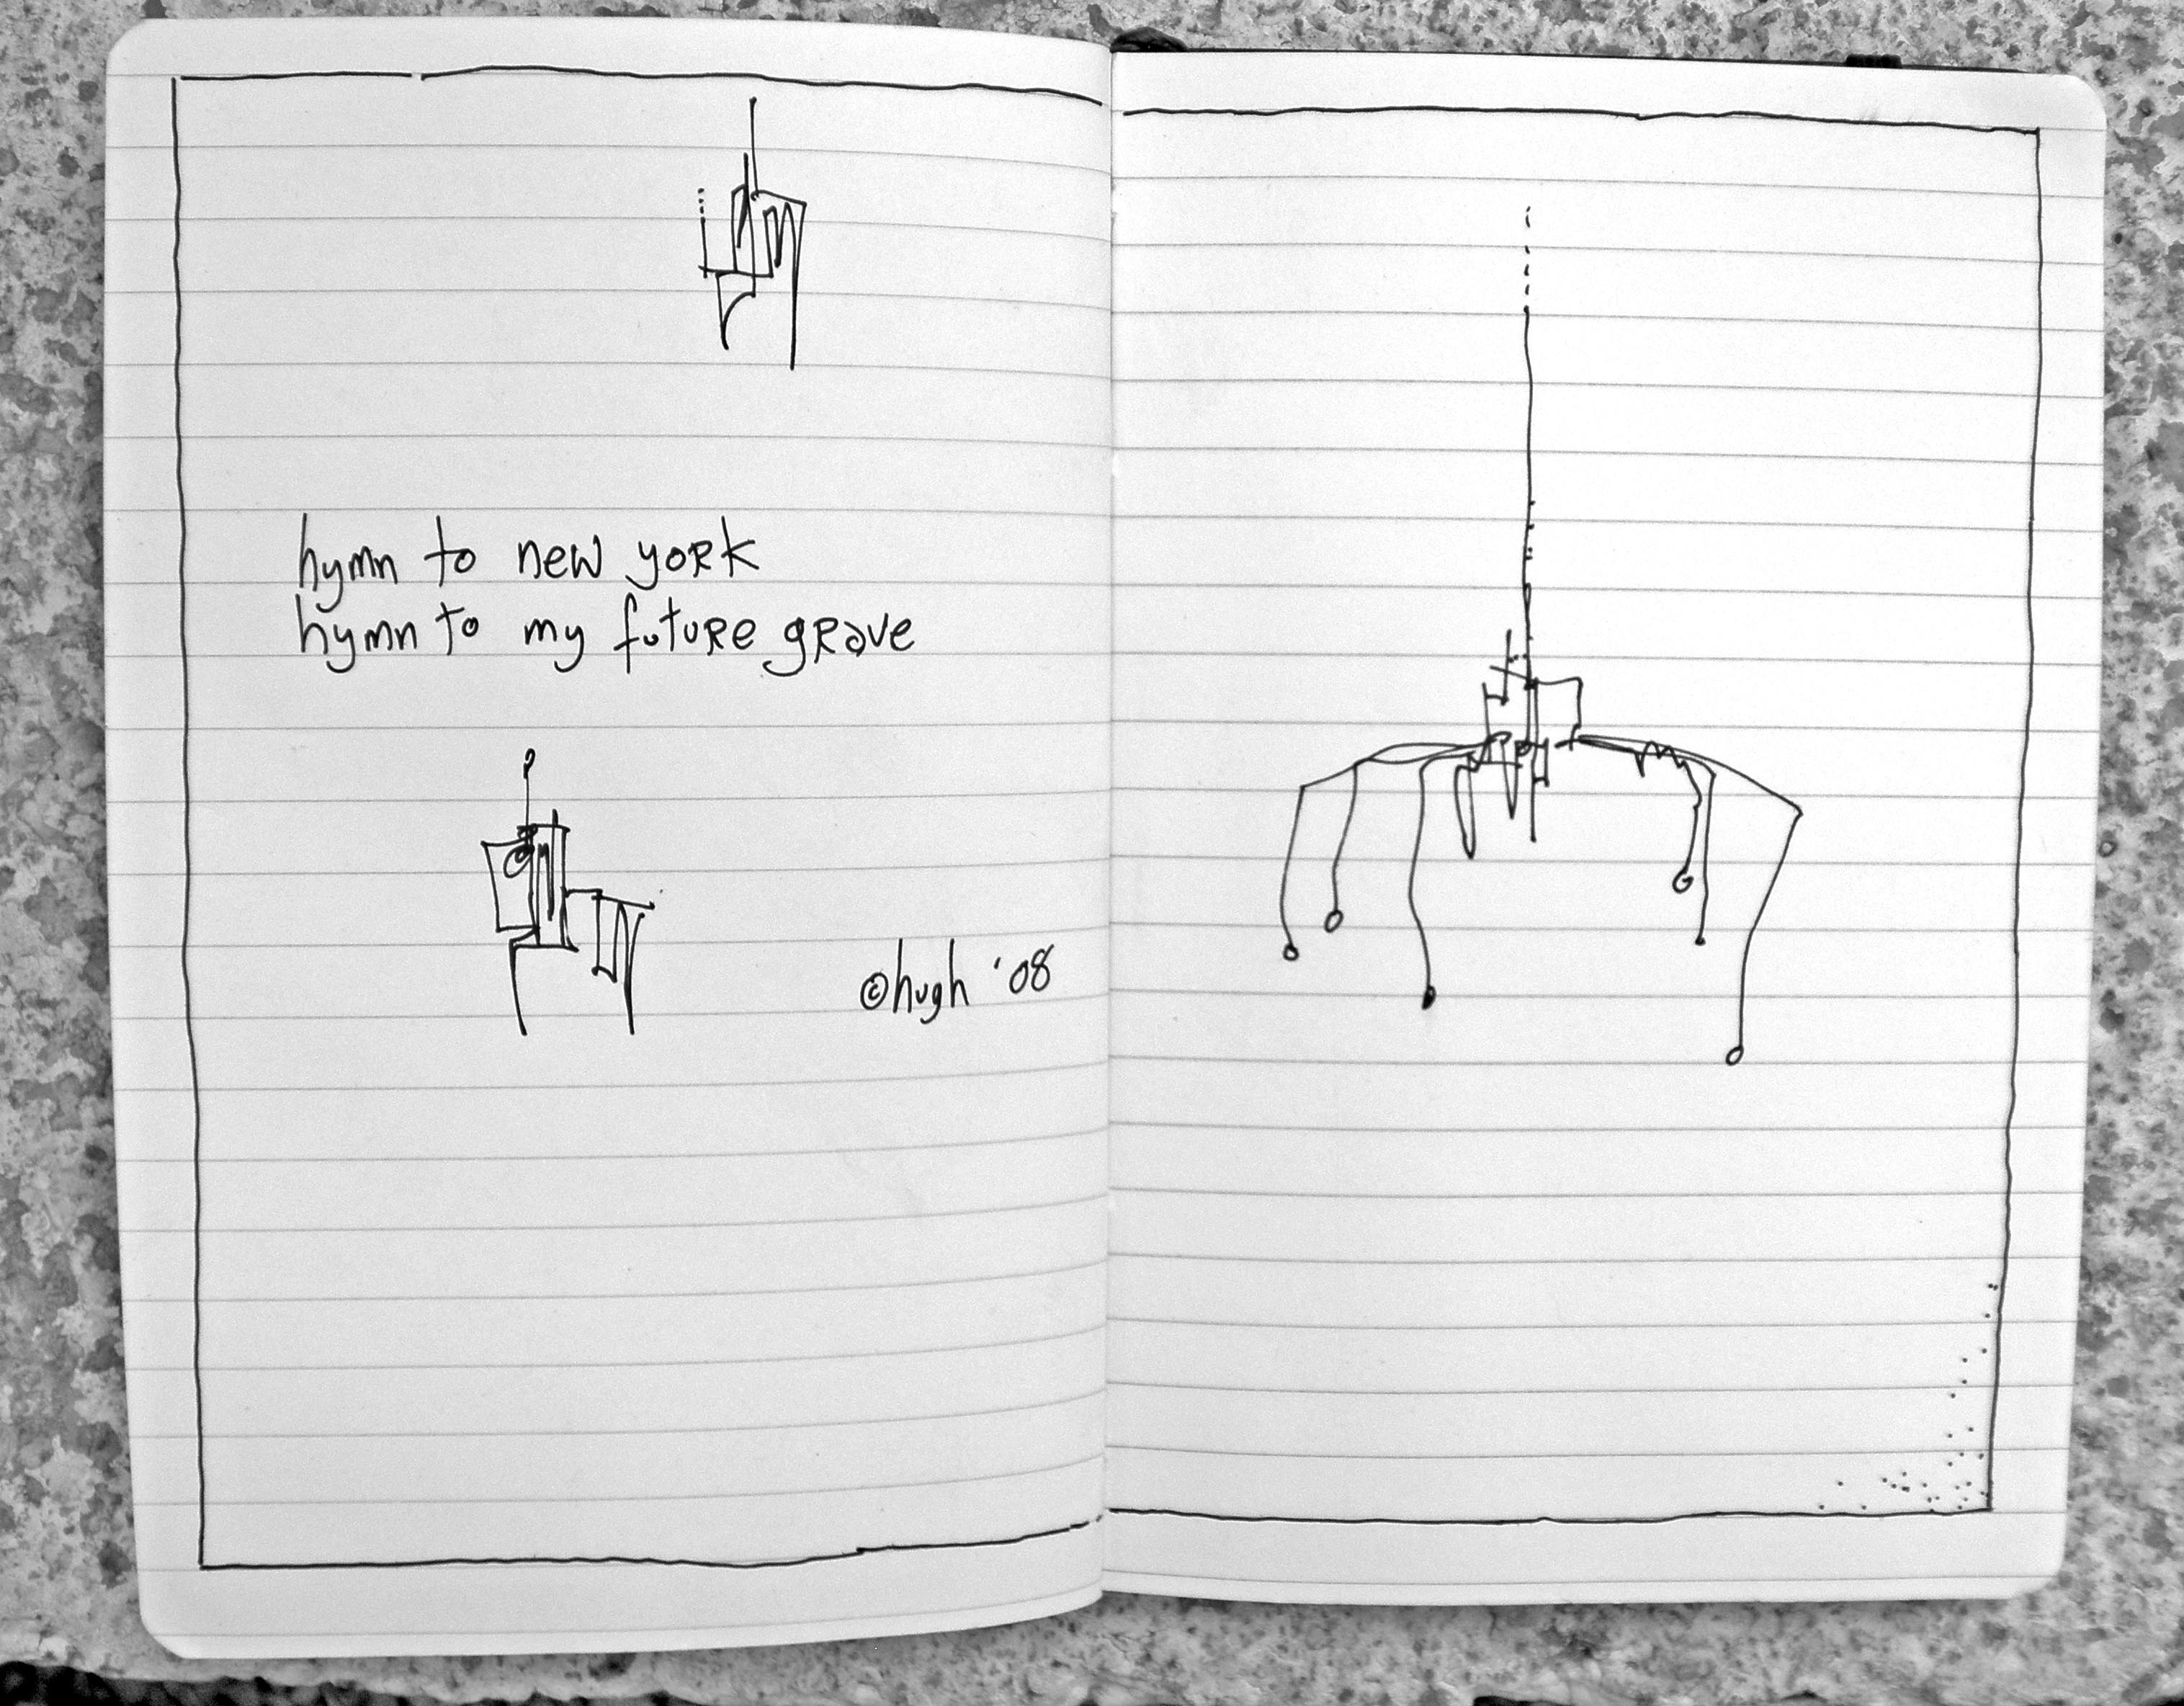 hymn to new york
hymn to my future grave
©hugh '08